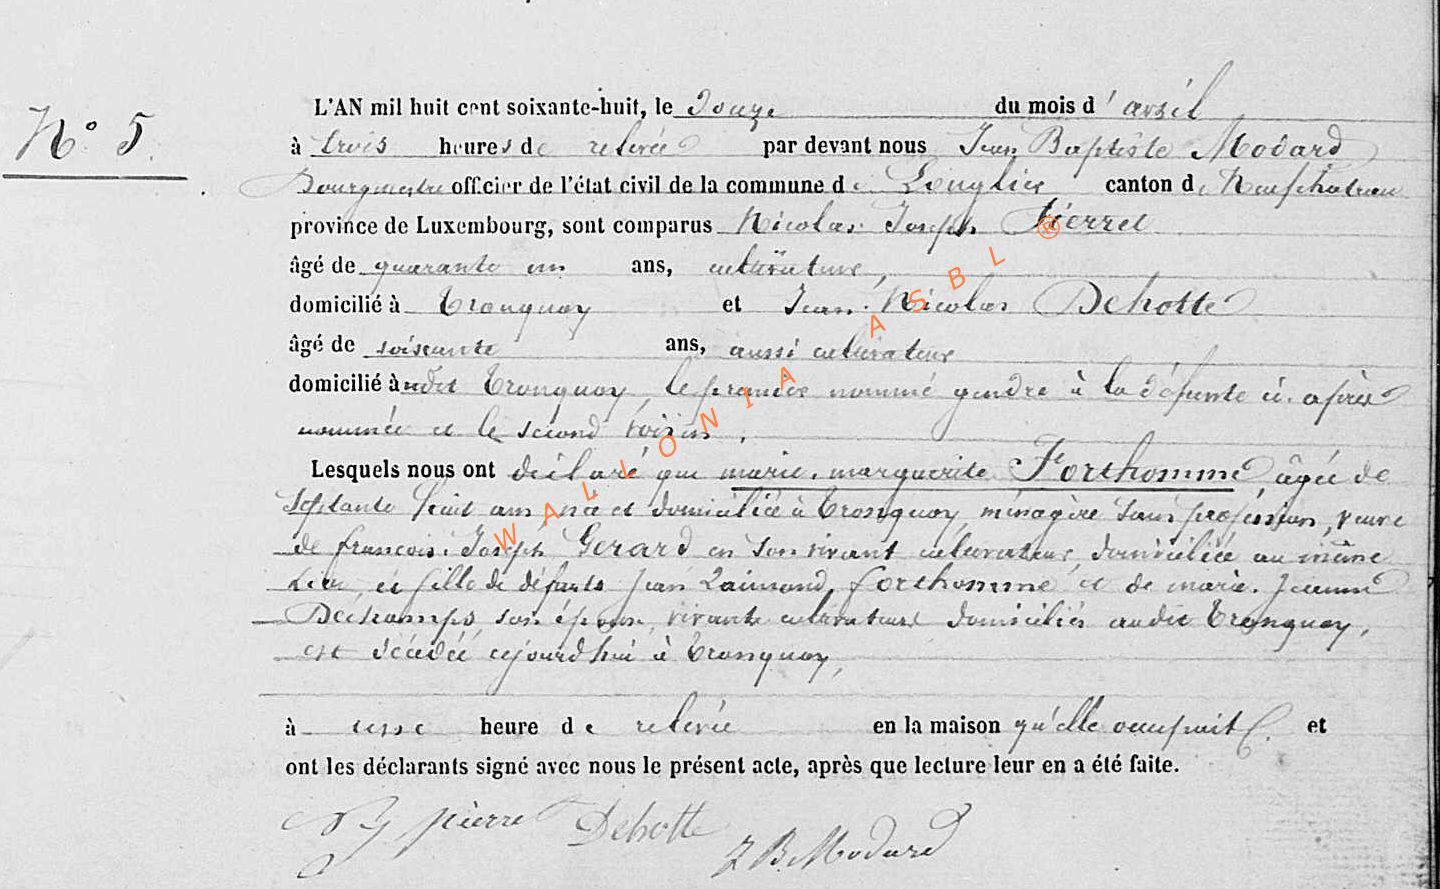 N° 5.
L'AN mil huit cent soixante-huit, le douze du mois d'avril
à trois heures de relevée par devant nous Jean Baptiste Modard
Bourgmestre officier de l'état civil de la commune de Longlier canton de Neufchateau
province de Luxembourg, sont comparus Nicolas Joseph Pierret
âgé de quarante un ans, cultivateur,
domicilié à Tronquoy et Jean Nicolas Dehotte
âgé de soixante ans, aussi cultivateur
domicilié à udit Tronquoy, le premier nommé gendre à la défunte ci-après
nommée et le second voisin,
Lesquels nous ont déclaré que marie marguerite Forthomme, âgée de
septante huit ans, née et domiciliée à Tronquoy, ménagère sans profession, veuve
de francois Joseph Gerard en son vivant cultivateur, domiciliée au même
Lieu, et fille de défunts Jean Raimond forthomme et de marie Jeanne
Dechamps son épouse, vivants cultivateurs domiciliés audit Tronquoy,
est décédée cejourd'hui à Tronquoy,
à une heure de relevée en la maison qu'elle occupait et
ont les déclarants signé avec nous le présent acte, après que lecture leur en a été faite.
N J pierret Dehotte J B Modard
WALLONIA ASBL ®